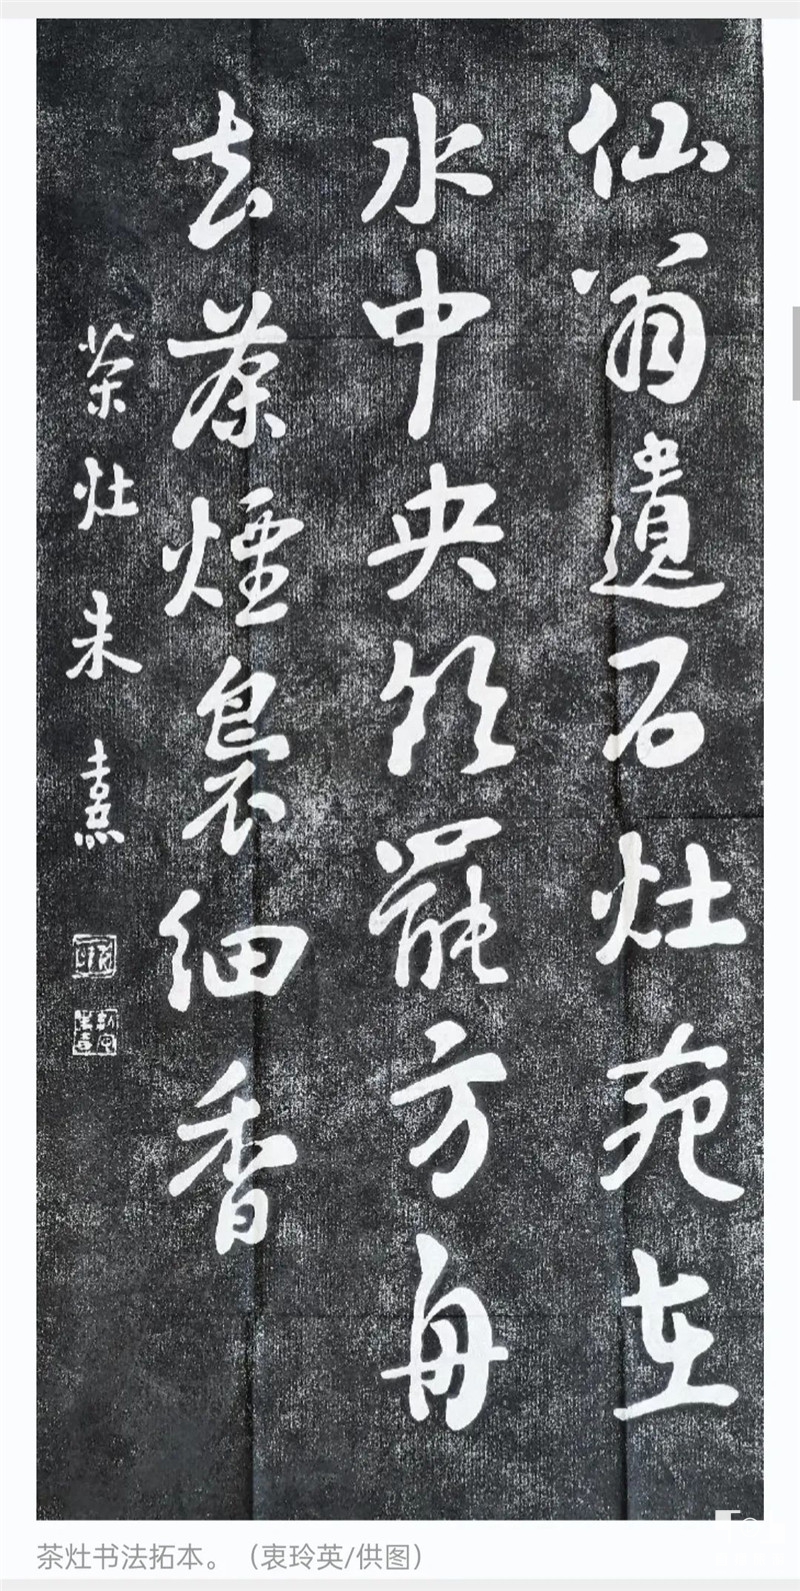 仙翁遺石灶宛在
水中央飲罷方舟
去茶煙裊細香
茶灶 朱熹
茶灶书法拓本。（衷玲英/供图）